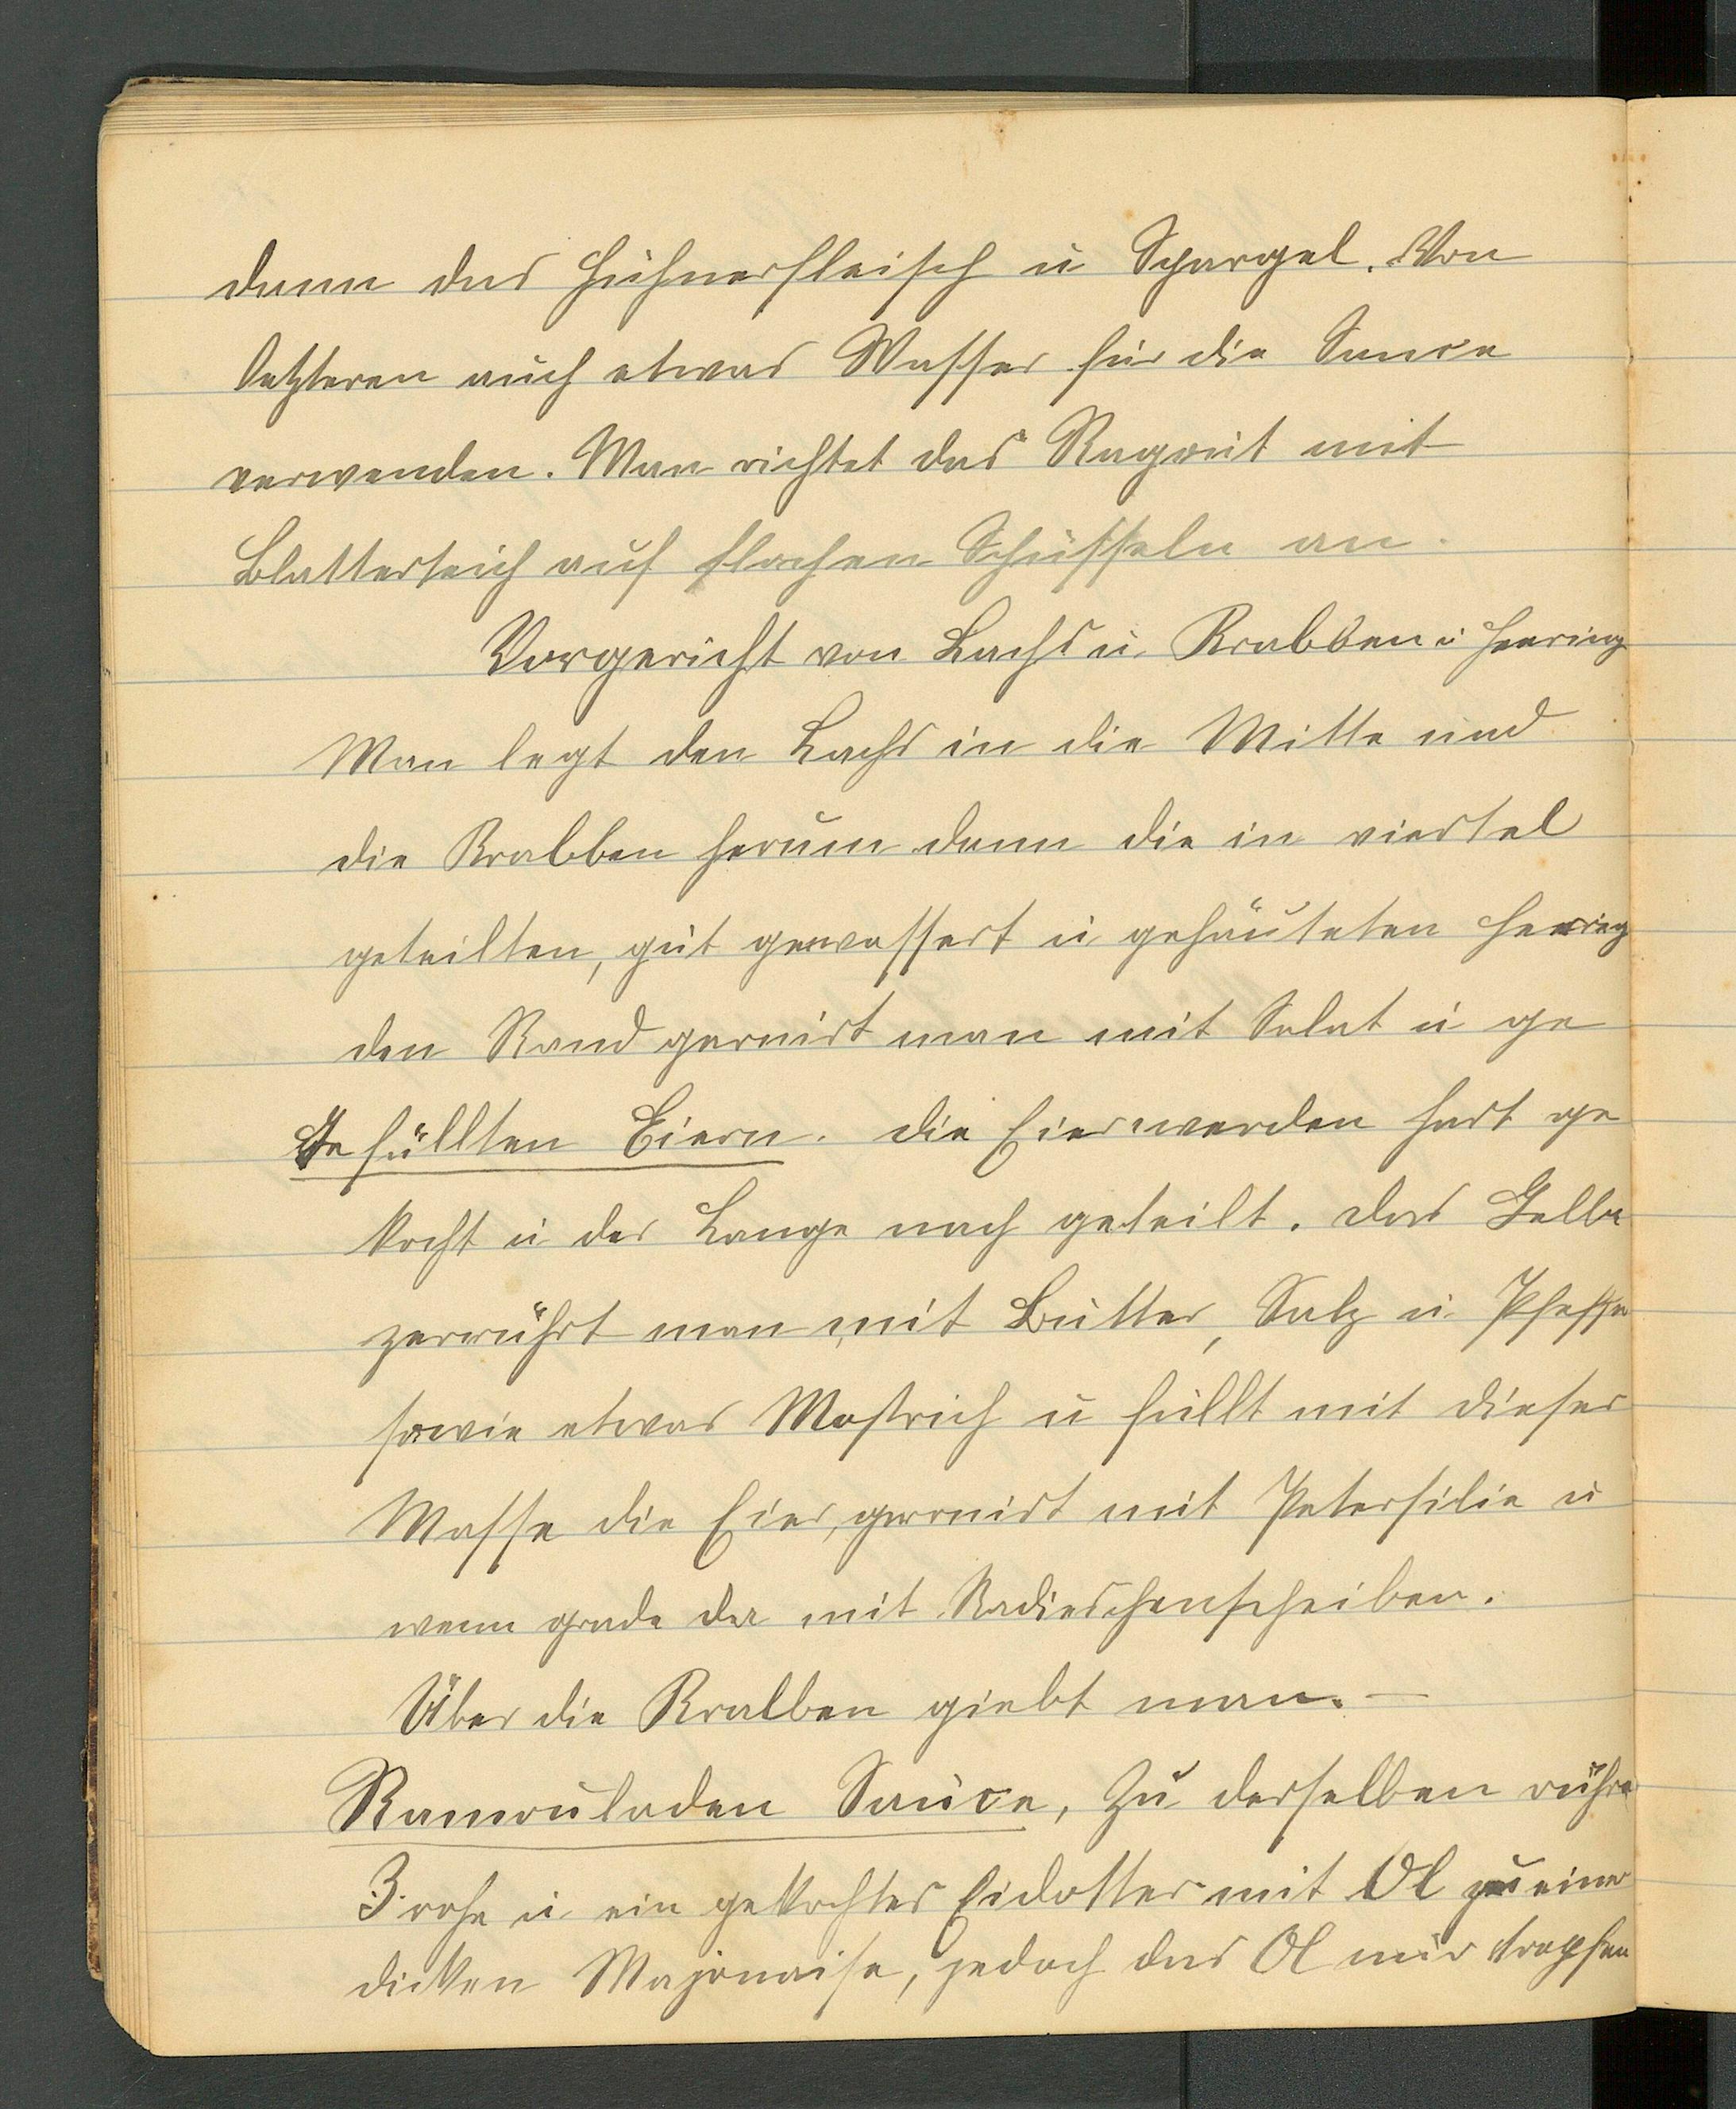 dann das Huhnerfleisch u Spargel. Von
letzteren auch etwas Wasser für die Sauce
verwenden. Man richtet das Ragout mit
Blatterteich auf flachen Schüsseln an.
Vorgericht von Lachs u. Krabben u Hearing
Man legt den Lachs in die Mitte und
die Krabben herum dann die in viertel
geteilten, gut gewassert u gehäuteten Heering
den Rand garnirt man mit Salat u ge
Gefüllten Eiern. die Eier werden hart ge
kocht u der Lange nach geteilt. das Gelbe
zerrührt man mit Butter, Salz u. Pfeffer
sowie etwas Mostrich u füllt mit dieser
Masse die Eier, garnirt mit Petersilie u
wenn grade da mit Radieschenscheiben.
Über die Krabben giebt man. —
Ramouladen Sauce, Zu derselben rühre
3 rohe u ein gekochtes Eidotter mit Ol zu einer
dicken Majonaise, jedoch das Ol nur tropfen